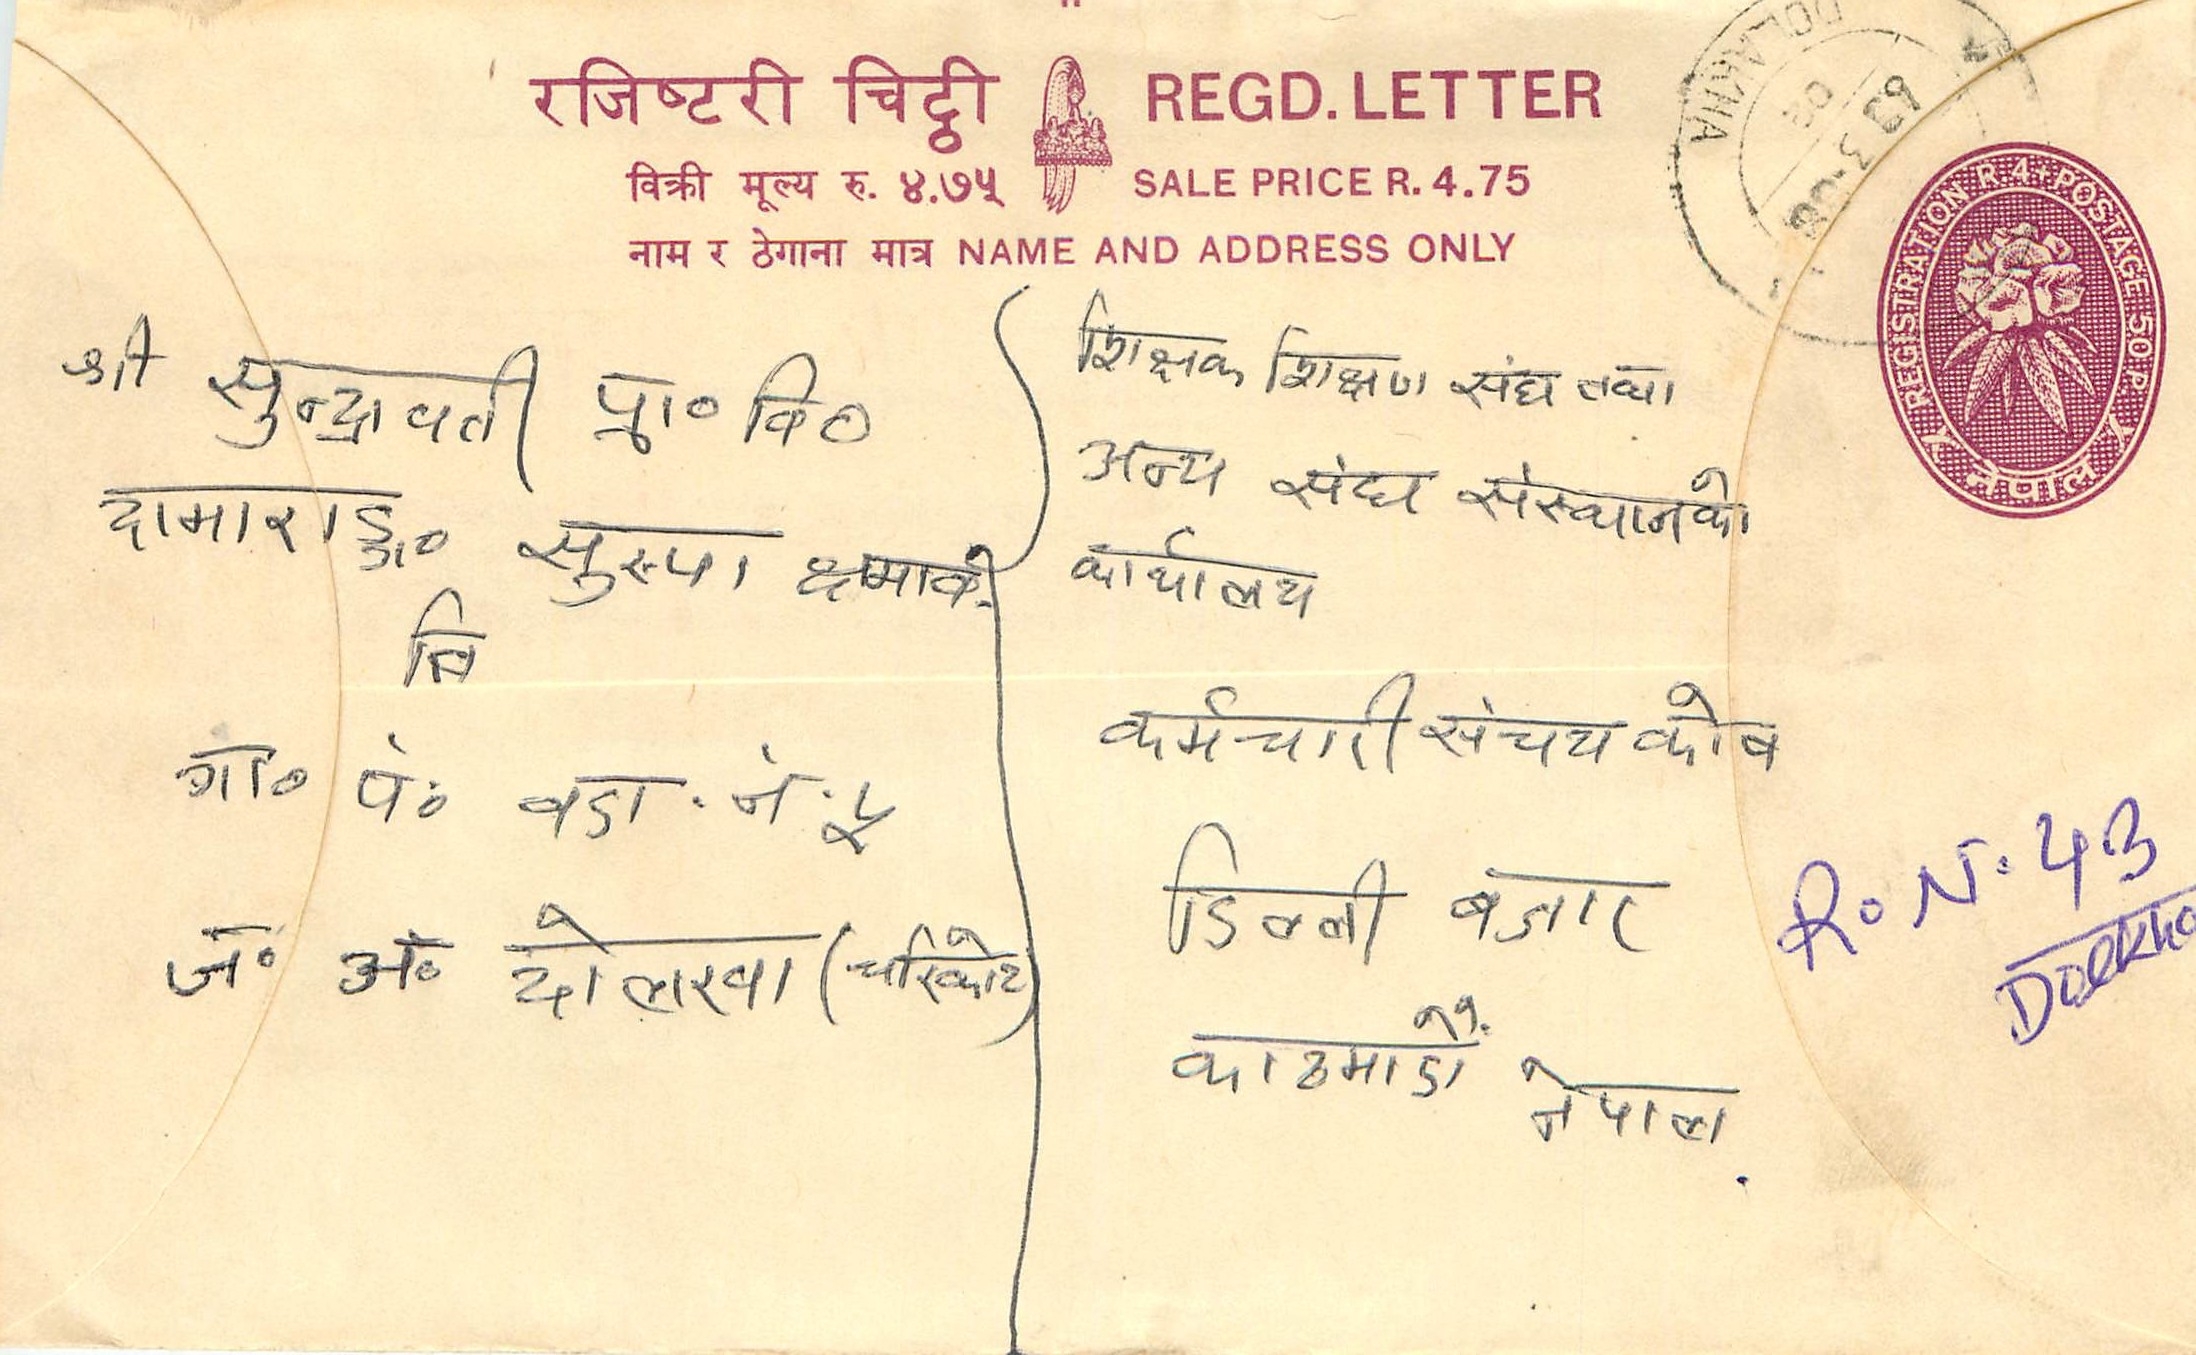 रजिष्टरी चिट्ठी REGD. LETTER
विक्री मूल्य रु. ४.७५ SALE PRICE R. 4.75
नाम र ठेगाना मात्र NAME AND ADDRESS ONLY
DOLAKHA
REGISTRATION R.4+POSTAGE 50 P.
नेपाल
श्री सुन्द्रावती प्रा० वि०
दामाराङ्ग० सुस्पा क्षमाव.
ति
गा० पं० वडा. नं. ५
जि० अं० दोलखा (चरिकोट)
शिक्षक शिक्षण संघ तथा
अन्य संघ संस्थानको
कार्यालय
कर्मचारी संचय कोष
डिल्ली बजार
काठमाडौं नेपाल.
R. N. 43
Dolkha